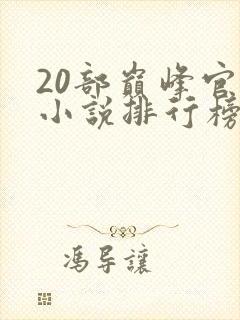 20部巔峰官
小說排行榜
馮导讓